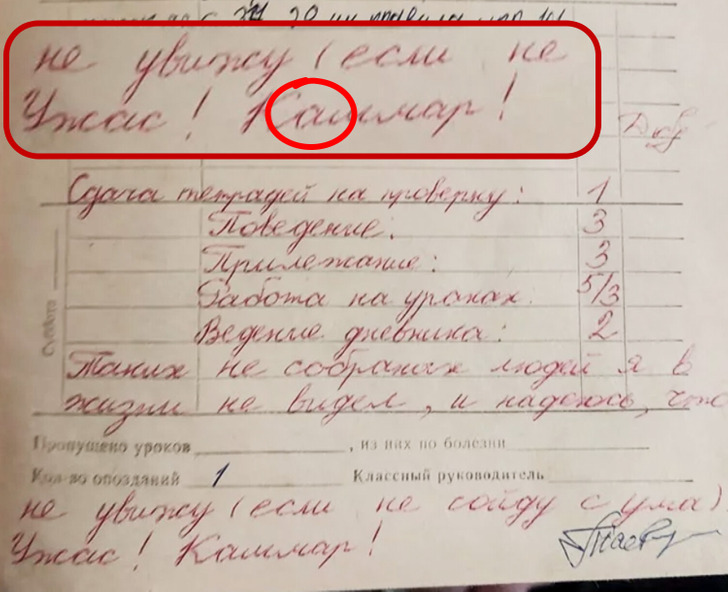 не увижу (если не
Ужас! Кашмар!
Сдача тетрадей на проверку: 1
Поведение: 3
Прилежание: 3
Работа на уроках: 5/3
Ведение дневника: 2
Суббота
Таких не собраных людей я в
жизни не видел, и надеюсь, что
Пропущено уроков , из них по болезни
Кол-во опозданий 1 Классный руководитель
не увижу (если не сойду с ума)
Ужас! Кашмар!